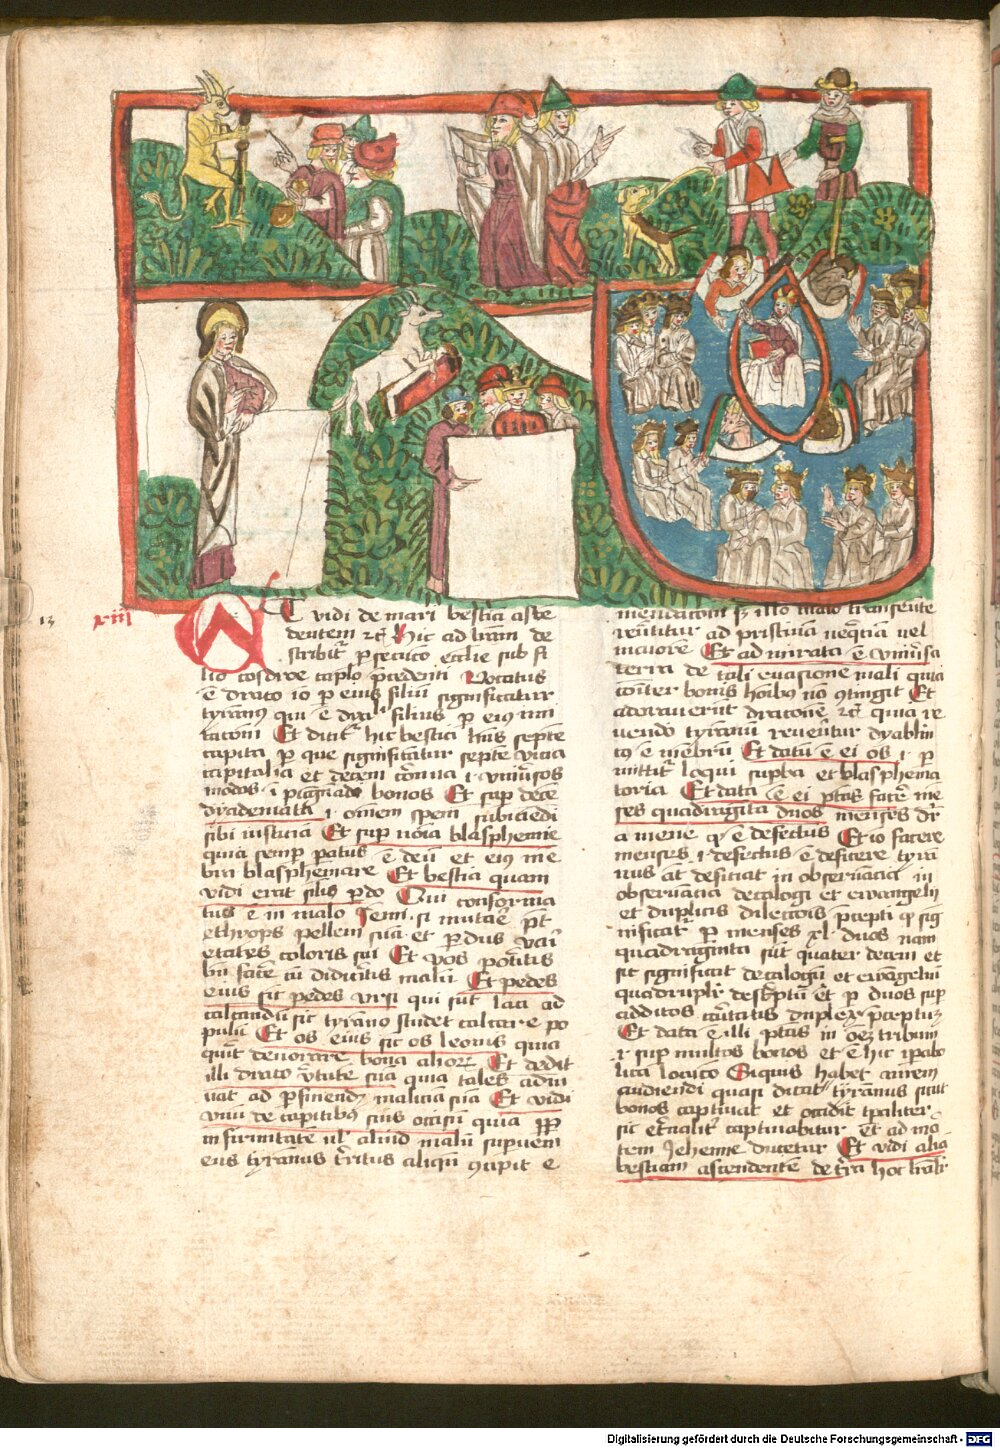 13 xiii
Et vidi de mari bestia asce
dentem ⁊c̄ Hic ad l̄ram de
scribit᷑ ꝑsecuco eccl̄ie sub fi
lio cosdroe caplo p̄cedenti Vocatus
ē draco io ꝑ eiꝰ filiū significatur
tyrann9 qui ē dya filius ꝑ eiꝰ imi
tacom Et dicit᷑ hic bestia hn̄s septē
capita ꝑ que significātur septē vicia
capitalia et decem cornua ⁊ vniūsos
modos ī pugnādi bonos Et sup decē
dyademata ⁊ omēm spem subiciēdi
sibi iusticiā Et sup noīa blasphemie
quia semꝑ patus ē deū et eiꝰ me
bra blasphemare Et bestia quam
vidi erat silis ꝑdo Qui conforma
tus ē in malo Jeremi si mutae p̄t
ethyops pellem suā et ꝑdus vari
etates coloris sui Et vos pot̄itis
bn̄ facē cū didicitis malū Et pedes
eius sic pedes vrsi qui sūt lati ad
calcandū sic tyrano studet calcare po
pulū Et os eius sic os leonis quia
querit deuorare bona alior᷑ Et dedit
illi draco v̄tute suā quia tales adiu
uat ad ꝑficiendū maliciam suā Et vidi
vnū de capitibꝰ suis occisū quia ꝓpt
infirmitatē vl᷑ aliud malū supueni
ens tyranus t̄ritus aliqn̄ cupit e
mendacom sꝫ illo malo transeunte
reūtitur ad pristina neq̄cia vel
maiorē Et admirata ē vniūsa
terra de tali euasione mali quia
cōiter bonis hoībus nō cōtingit Et
adorauerūt draconē ⁊c̄ quia re
uerendo tyranū reuēntur dyabl̄m
cuiꝰ ē mēbrū Et datū ē ei os ⁊ ꝑ
mittit᷑ loqui supba et blasphema
toria Et data ē ei ptas facē me
ses quadragīta duos menses dr̄
a mene qr ē defectus Et io facere
menses ⁊ defectus ē deficere tyra
nus at deficiat in obseruācia in
obseruācia decalogi et ewangelii
et duplicis dilectois p̄cepti qd sig
nificat᷑ ꝑ menses xl duos nam
quadraginta sūt quater decem et
sic significat decalogū et ewangeliū
quadruplr̄ descptū et ꝑ duos sup
additos caritatis duplex p̄ceptū
Et data ē illi ptas in oēꝫ tribum
⁊ sup multos bonos et ē hic ypabo
lica locutio Siquis habet aurem
audiendi quasi dicat tyrannus sicut
bonos captiuat et occidit tpaliter
sic et̄nalit᷑ captiuabitur et ad mo
tem Jehenne ducetur Et vidi alia
bestiam ascendentē de t̄ra hoc l̄ralr̄
Digitalisierung gefördert durch die Deutsche Forschungsgemeinschaft - DFG